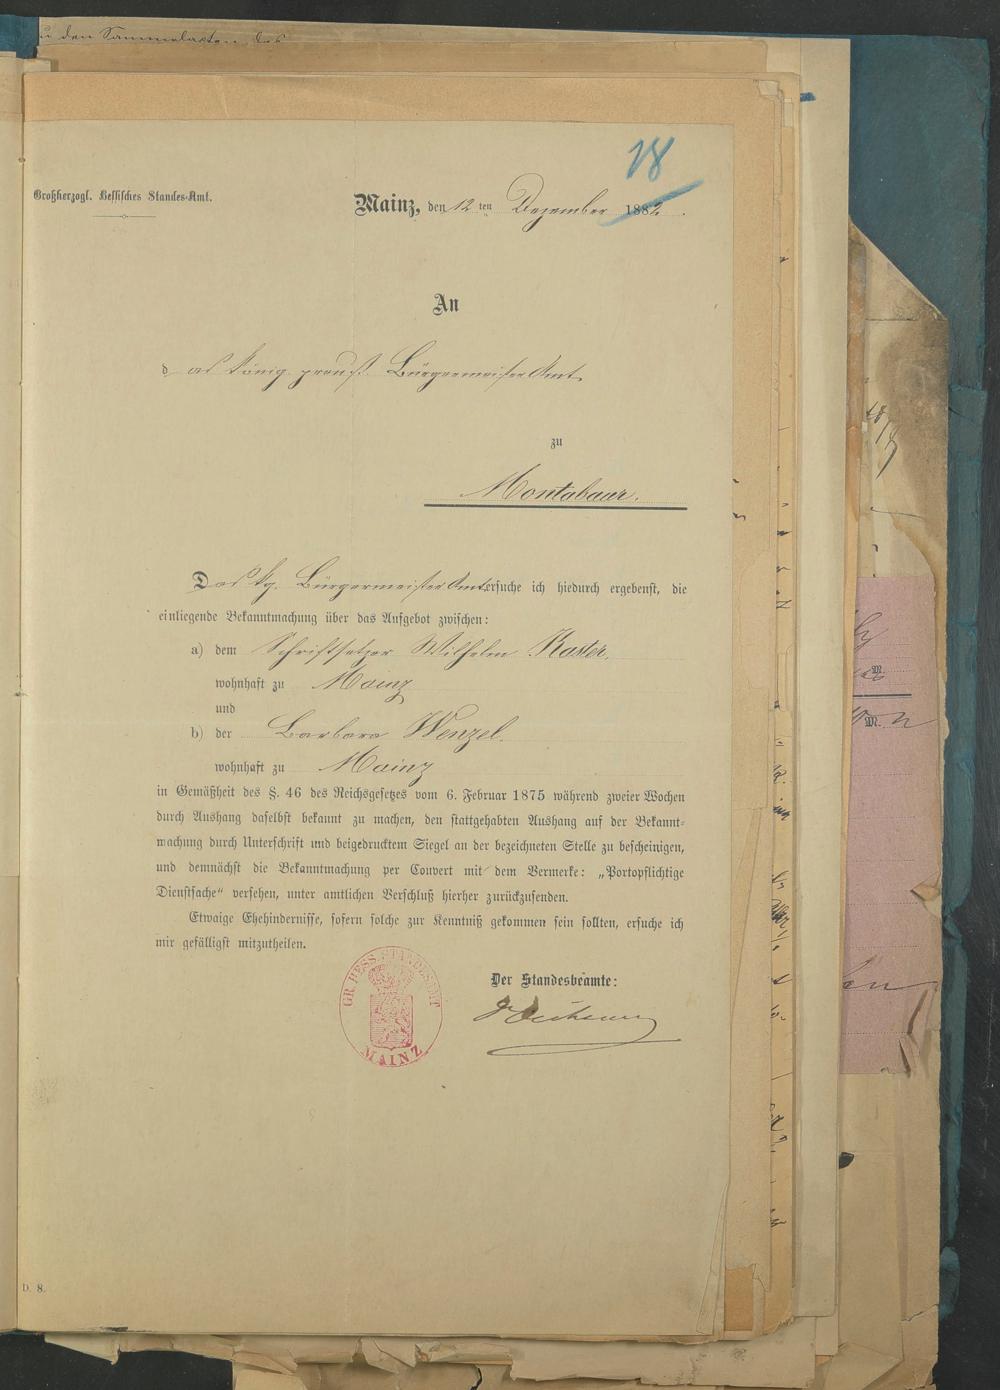 zu den Sammelakten des
18
Großherzogl. Hessisches Standes-Amt.
Mainz, den 12ten Dezember 1882.
An
das Königl. preuß. Bürgermeister Amt
zu
Montabaur.
Das Kg. Bürgermeister Amt ersuche ich hiedurch ergebenst, die
einliegende Bekanntmachung über das Aufgebot zwischen:
a) dem Schriftsetzer Wilhelm Kaster.
wohnhaft zu Mainz
und
b) der Barbara Wenzel.
wohnhaft zu Mainz
in Gemäßheit des §. 46 des Reichsgesetzes vom 6. Februar 1875 während zweier Wochen
durch Aushang daselbst bekannt zu machen, den stattgehabten Aushang auf der Bekannt-
machung durch Unterschrift und beigedrucktem Siegel an der bezeichneten Stelle zu bescheinigen,
und demnächst die Bekanntmachung per Couvert mit dem Vermerke: „Portopflichtige
Dienstsache“ versehen, unter amtlichen Verschluß hierher zurückzusenden.
Etwaige Ehehindernisse, sofern solche zur Kenntniß gekommen sein sollten, ersuche ich
mir gefälligst mitzutheilen.
GR. HESS. STANDESAMT
MAINZ
Der Standesbeamte:
D. 8.
M.
M.